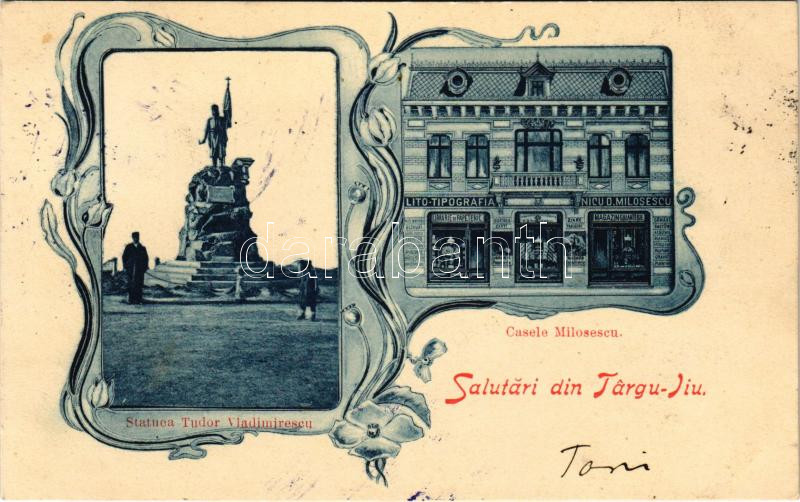 LITO-TIPOGRAFIA NICU D. MILOSESCU
LIBRARIE SI PAPETERIE
darabanth
Casele Milosescu.
Salutări din Târgu-Jiu.
Statuea Tudor Vladimirescu
Toni